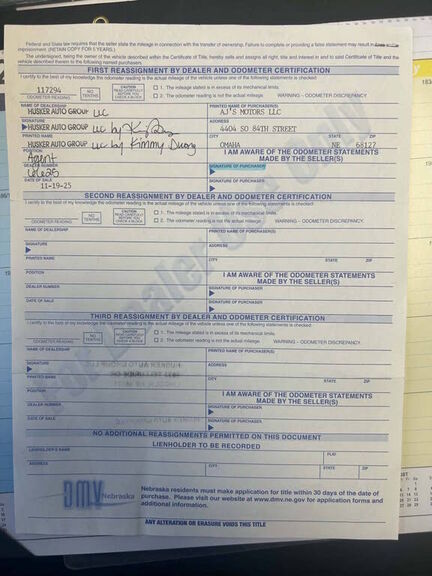 Federal and State law requires that the seller state the mileage in connection with the transfer of ownership. Failure to complete or providing a false statement may result in fines and/or
imprisonment. (RETAIN COPY FOR 5 YEARS.)
The undersigned, taking the owner of the vehicle described within the Certificate of Title, hereby sells and assigns all right, title and interest in and to said Certificate of Title and the
vehicle described therein to the purchaser(s) listed below.
FIRST REASSIGNMENT BY DEALER AND ODOMETER CERTIFICATION
I certify to the best of my knowledge the odometer reading is the actual mileage of the vehicle unless one of the following statements is checked:
117294
ODOMETER READING
NO TENTHS
CAUTION READ CAREFULLY BEFORE YOU CHECK A BLOCK
1. The mileage stated is in excess of its mechanical limits.
2. The odometer reading is not the actual mileage. WARNING – ODOMETER DISCREPANCY.
NAME OF DEALERSHIP PRINTED NAME OF PURCHASER(S)
HUSKER AUTO GROUP LLC AJ'S MOTORS LLC
SIGNATURE ADDRESS
HUSKER AUTO GROUP LLC by 4404 SO 84TH STREET
PRINTED NAME CITY STATE ZIP
HUSKER AUTO GROUP LLC by Kimmy Duong OMAHA NE 68127
POSITION
Agent
I AM AWARE OF THE ODOMETER STATEMENTS
MADE BY THE SELLER(S)
DEALER NUMBER SIGNATURE OF PURCHASER
DATE OF SALE SIGNATURE OF PURCHASER
11-19-25
SECOND REASSIGNMENT BY DEALER AND ODOMETER CERTIFICATION
I certify to the best of my knowledge the odometer reading is the actual mileage of the vehicle unless one of the following statements is checked:
ODOMETER READING
NO TENTHS
CAUTION READ CAREFULLY BEFORE YOU CHECK A BLOCK
1. The mileage stated is in excess of its mechanical limits.
2. The odometer reading is not the actual mileage. WARNING – ODOMETER DISCREPANCY.
NAME OF DEALERSHIP PRINTED NAME OF PURCHASER(S)
SIGNATURE ADDRESS
PRINTED NAME CITY STATE ZIP
POSITION
I AM AWARE OF THE ODOMETER STATEMENTS
MADE BY THE SELLER(S)
DEALER NUMBER SIGNATURE OF PURCHASER
DATE OF SALE SIGNATURE OF PURCHASER
THIRD REASSIGNMENT BY DEALER AND ODOMETER CERTIFICATION
I certify to the best of my knowledge the odometer reading is the actual mileage of the vehicle unless one of the following statements is checked:
ODOMETER READING
NO TENTHS
CAUTION READ CAREFULLY BEFORE YOU CHECK A BLOCK
1. The mileage stated is in excess of its mechanical limits.
2. The odometer reading is not the actual mileage. WARNING – ODOMETER DISCREPANCY.
NAME OF DEALERSHIP PRINTED NAME OF PURCHASER(S)
SIGNATURE ADDRESS
PRINTED NAME CITY STATE ZIP
POSITION
I AM AWARE OF THE ODOMETER STATEMENTS
MADE BY THE SELLER(S)
DEALER NUMBER SIGNATURE OF PURCHASER
DATE OF SALE SIGNATURE OF PURCHASER
NO ADDITIONAL REASSIGNMENTS PERMITTED ON THIS DOCUMENT
LIENHOLDER TO BE RECORDED
LIENHOLDER'S NAME
ADDRESS CITY STATE ZIP
DMV Nebraska
Nebraska residents must make application for title within 30 days of the date of
purchase. Please visit our website at www.dmv.ne.gov for application forms and
additional information.
ANY ALTERATION OR ERASURE VOIDS THIS TITLE